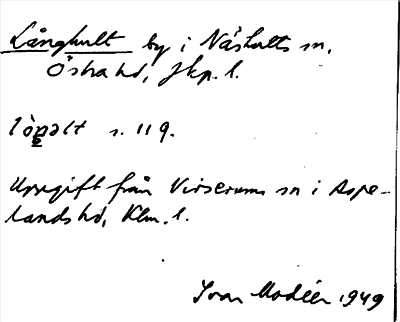 Långhult by i Näshults sn,
Östra hd, Jkp. l.
lòŋəlt s. 119.
Uppgift från Virserums sn i Aspe-
lands hd, Klm. l.
Ivar Modéer 1949